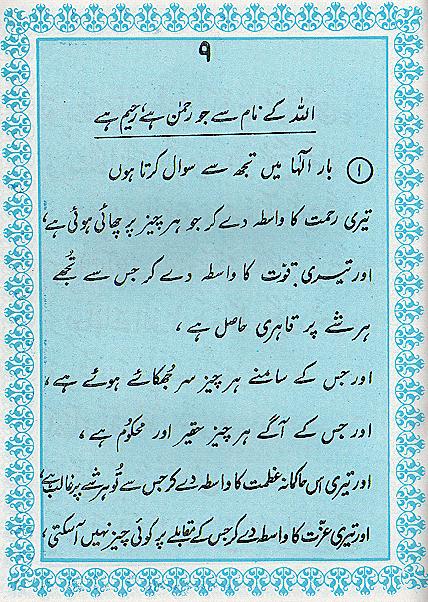 ۹
اللہ کے نام سے جو رحمٰن ہے، رحیم ہے
۱ بار الٰہا میں تجھ سے سوال کرتا ہوں
تیری رحمت کا واسطہ دے کر جو ہر چیز پر چھائی ہوئی ہے،
اور تیری قوت کا واسطہ دے کر جس سے تُجھے
ہر شے پر قاہری حاصل ہے،
اور جس کے سامنے ہر چیز سر جُھکائے ہوئے ہے،
اور جس کے آگے ہر چیز حقیر اور محکوم ہے،
اور تیری اس حاکمانہ عظمت کا واسطہ دے کر جس سے تُو ہر شے پر غالب ہے،
اور تیری عزّت کا واسطہ دے کر جس کے مقابلے پر کوئی چیز نہیں آسکتی،